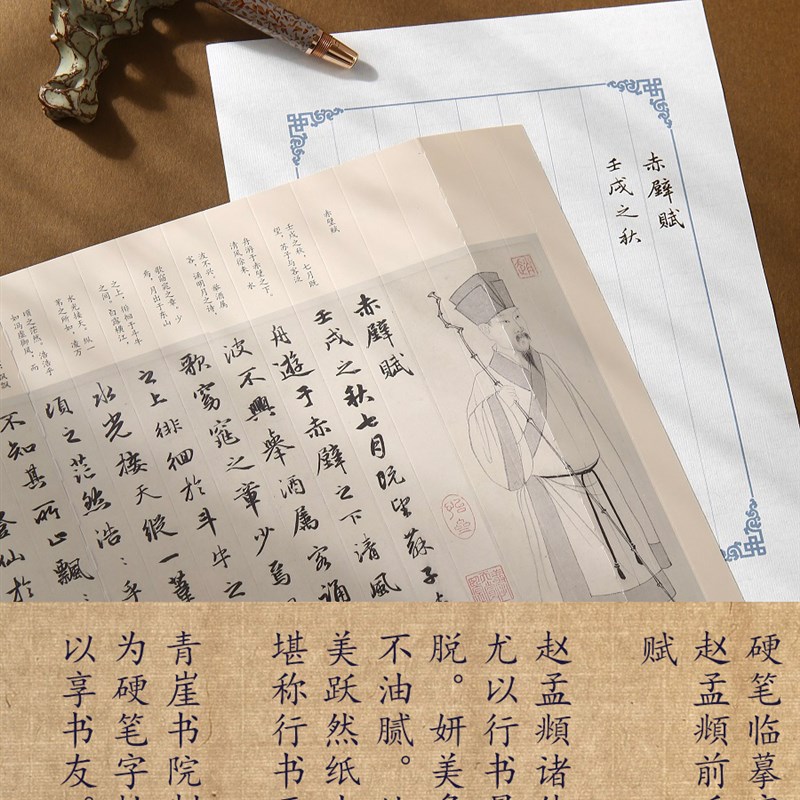 赤壁賦
壬戌之秋
赤壁赋
壬戌之秋，七月既
望，苏子与客泛
舟游于赤壁之下。
清风徐来，水
波不兴。举酒属
客，诵明月之诗，
歌窈窕之章。少
焉，月出于东山
之上，徘徊于斗牛
之间。白露横江，
水光接天。纵一
苇之所如，凌万
顷之茫然。浩浩乎
如冯虚御风，而
赤壁賦
壬戌之秋七月既望蘇子
舟遊于赤壁之下清風
波不興舉酒属客誦
歌窈窕之章少焉
之上徘徊於斗牛之
水光接天縱一葦
頃之茫然浩:乎
不知其所止飄:
登仙於
硬笔临摹
赵孟頫前
赋
赵孟頫诸
尤以行书
脱。妍美
不油腻。
美跃然纸
堪称行书
青崖书院
为硬笔字
以享书友。